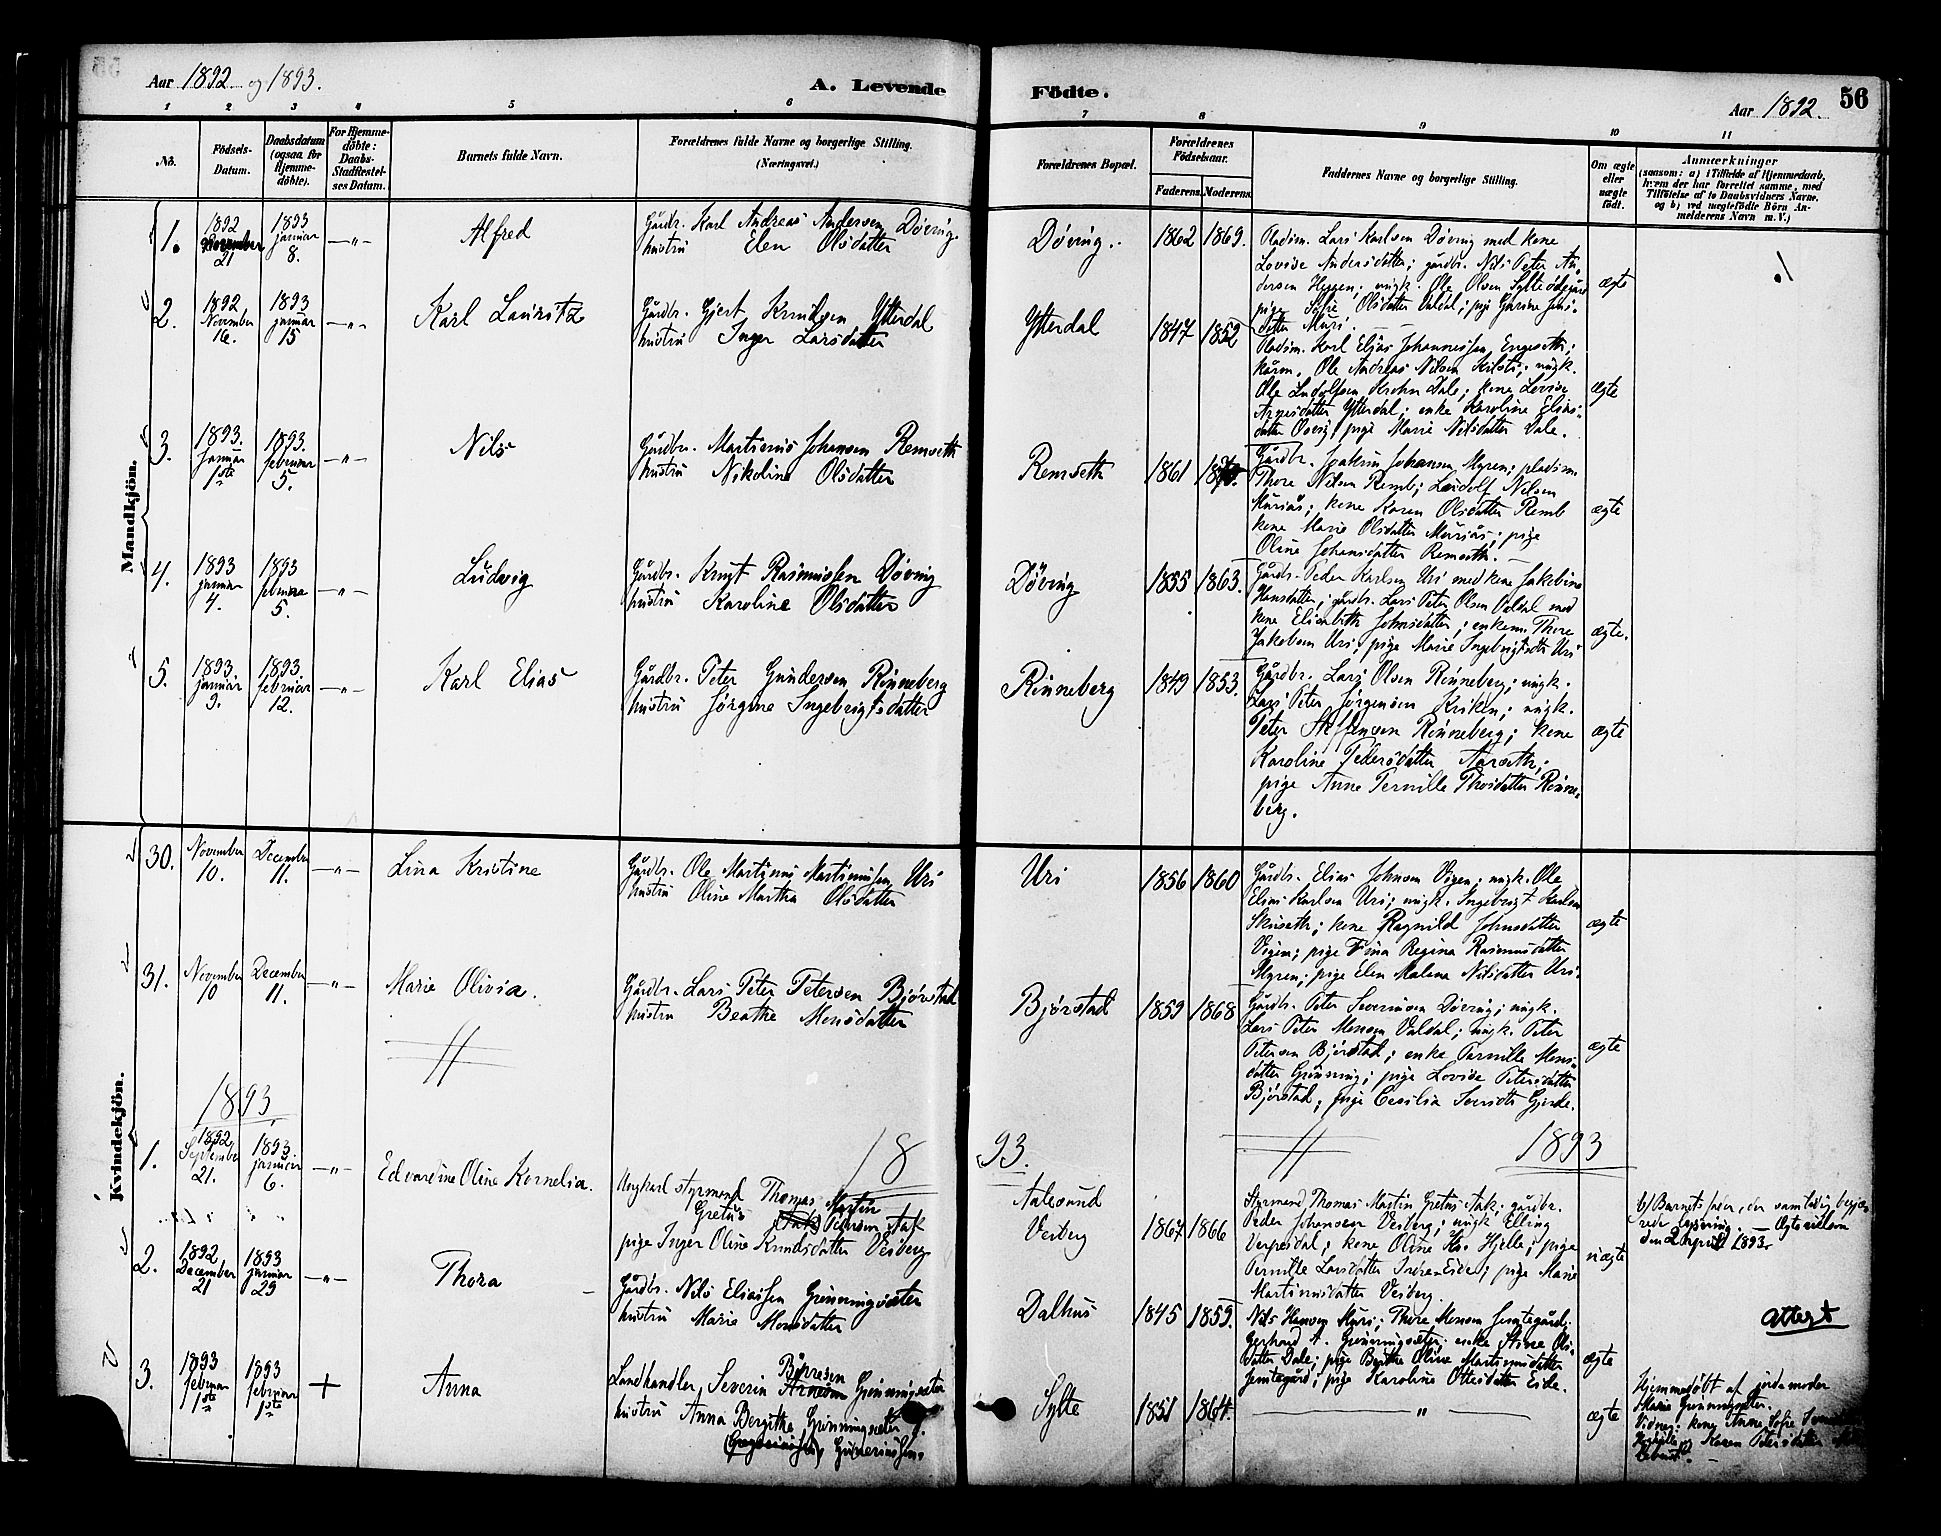 Aar 1892 og 1893.
A. Levende
Födte.
Aar 1892.
56
1 2 3 4 5 6 7 8 9 10 11
No.
Födsels-
Datum.
Daabsdatum
(ogsaa for
Hjemme-
döbte).
For Hjemme-
döbte:
Daabs-
Stadfæstel-
ses Datum.
Barnets fulde Navn.
Forældrenes fulde Navne og borgerlige Stilling.
(Næringsvei.)
Forældrenes Bopæl.
Forældrenes
Födselsaar.
Faderens. Moderens.
Faddernes Navne og borgerlige Stilling.
Om ægte
eller
uægte
födt.
Anmærkninger
(saasom: a) i Tilfælde af Hjemmedaab,
hvem der har forrettet samme, med
Tilföielse af to Daabsvidners Navne,
og b) ved uægtefödte Börn An-
melderens Navn m. V.)
Mandkjön.
1.
1892
21
1893
januar
8.
Alfred
Gårdbr. Karl Andreas Andersen Döving
hustru Elen Olsdatter
Döving.
1862 1869.
Pladsm. Lars Karlsen Döving med kone
Lovise Andersdatter; gårdbr. Nils Peter An-
dersen Heggen; ungk. Ole Olsen Sylte
pige Sofie Olsdatter Valdal; pige
datter Muri.
ægte
2.
1892
November
16.
1893
januar
15
Karl Lauritz
Gårdbr. Gjert Knudsen Ytterdal
hustru Inger Larsdatter
Ytterdal
1847 1852
Pladsm. Karl Elias Johannessen Engeseth;
Ole Andreas Nilsen Kilsti; ungk.
Ole Ludolfsen Krohn Dale; kone Lovise
datter Ytterdal; enke Karoline Elias-
datter pige Marie Nilsdatter Dale.
ægte
3.
1893.
januar
1ste
1893.
februar
5.
Nils
Gårdbr. Martinus Johansen Remseth
hustru Nikoline Olsdatter
Remseth
1861
Gårdbr. Joakim Johansen Myren; pladsm.
Thore Nilsen Remb; Ludolf Nilsen
Muriås; kone Karen Olsdatter Remb
kone Marie Olsdatter Muriås; pige
Oline Johansdatter Remseth.
ægte
4.
1893
januar
4.
1893
februar
5.
Ludvig
Gårdbr. Knut Rasmussen Döving
hustru Karoline Olsdatter
Döving
1855 1863.
Gårdb. Peder Karlsen Uri med kone Jakobine
Hansdatter; gårdbr. Lars Peter Olsen Valdal med
kone Elisabeth Johnsdatter; enkem. Thore
Jakobsen Uri; pige Marie Ingebrigtsdatter Uri
ægte.
5.
1893
januar
9.
1893.
februar
12.
Karl Elias
Gårdbr. Peter Gundersen Rönneberg
hustru Jörgine Ingebrigtsdatter
Rönneberg
1849 1853.
Gårdbr. Lars Olsen Rönneberg; ungk.
Lars Peter Jörgensen Kriken; ungk.
Peter Steffensen Rönneberg; kone
Karoline Pedersdatter
pige Anne Pernille Thoesdatter Rönne-
berg.
ægte
Kvindekjön.
30.
November
10.
December
11.
Lina Kristine
Gårdbr. Ole Martinus Martinussen Uri
hustru Oline Martha Olsdatter
Uri
1856 1860
Gårdbr. Elias Johnsen Vigen; ungk. Ole
Elias Karlsen Uri; ungk. Ingebrigt Karlsen
kone Ragnild Johnsdatter
Vigen; pige Fina Regina Rasmusdatter
Myren; pige Elen Malena Nilsdatter Uri.
ægte
31.
November
10
December
11.
Marie Olivia.
Gårdbr. Lars Peter Petersen Björstad
hustru Beathe Monsdatter
Björstad
1859 1868
Gårdb. Peter Severinsen Döving; ungk.
Lars Peter Monsen Valdal; ungk. Peter
Petersen Björstad; enke Pernille Mons-
datter Grönning; pige Lovise Petersdatter
Björstad; pige Cecilia Gjerde.
ægte
1893
1893.
1893
1.
1892
September
21.
1893
januar
6.
Edvardine Oline Kornelia.
Ungkarl styrmand Thomas Martin
Gretus Petersen Aak
pige Inger Oline Knudsdatter Veiberg
Aalesund
Veiberg
1867 1866
Styrmand Thomas Martin Gretus Aak; gårdbr.
Peder Johansen Veiberg; ungk. Elling
Verpesdal; kone Oline Hjelle; pige
Pernille Larsdatter Eide; pige Marie
Martinusdatter Veiberg.
uægte
b) Barnets fader, der samtidig begjæ-
rede lysning. — Ægteviedom
den 2 April 1893.
2.
1892
December
21
1893
januar
29
Thora
Gårdbr. Nils Eliassen Grönningsæter
hustru Marie Monsdatter
Dalhus
1845 1859.
Nils Hansen Muri; Thore Monsen
Gerhard A. Grönningsæter; enke Stine Ols-
datter Dale; pige Berthe Oline Martinusdatter
pige Karoline Ottesdatter Eide.
ægte
Attest
3.
1893
februar
1ste
1893
februar
1ste
+
Anna
Landhandler, Severin Grönningsæter
hustru Anna Bergitha Grönningsæter
Sylte
1851 1864.
"
ægte
Hjemmedöbt af jordemoder
Marie Grönningsæter.
Vidner: kone Anne Sofie
Karen Petersdatter